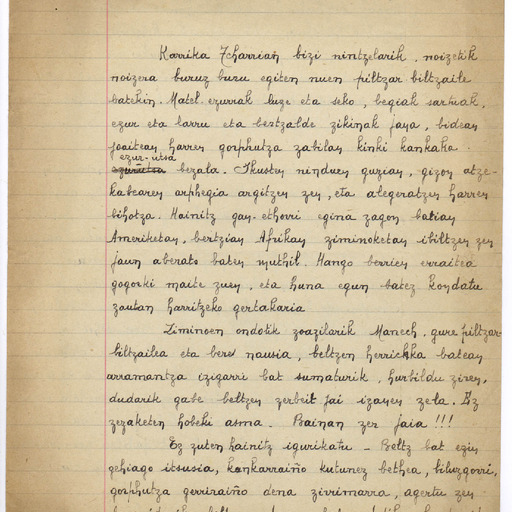 Karrika Zcharrian bizi nintzelarik, noizetik
noizera buruz buru egiten nuen piltzar biltzaile
batekin. Matel-ezurrak luze eta seko, begiak sartuak,
ezur eta larru eta bertzalde zikinak jana, bidean
joaitean harren gorphutza zabilan kinki kankaka
ezur-utsa
bezala. Ikusten ninduen guzian, gizon atze-
kabearen arphegia argitzen zen, eta alegeratzen harren
bihotza. Hainitz gan-ethorri egina zagon batian
Ameriketan, bertzian Afrikan ziminoketan ibiltzen zen
jaun aberats baten muthil. Hango berrien erraitea
gogotki maite zuen, eta huna egun batez kondatu
zautan harritzeko gertakaria
Ziminoen ondotik zoazilarik Manech, gure piltzar-
biltzailea eta bere nausia, beltzen herrichka batean
arramantza izigarri bat sumaturik, hurbildu ziren,
dudarik gabe beltzen zerbeit jai izanen zela. Ez
zezaketen hobeki asma. Bainan zer jaia!!!
Ez zuten hainitz igurikatu - Beltz bat ezin
gehiago itsusia, kankarraino kutunez bethea, biluzgorri,
gorphutza gerriraino dena zirrimarra, agertu zen